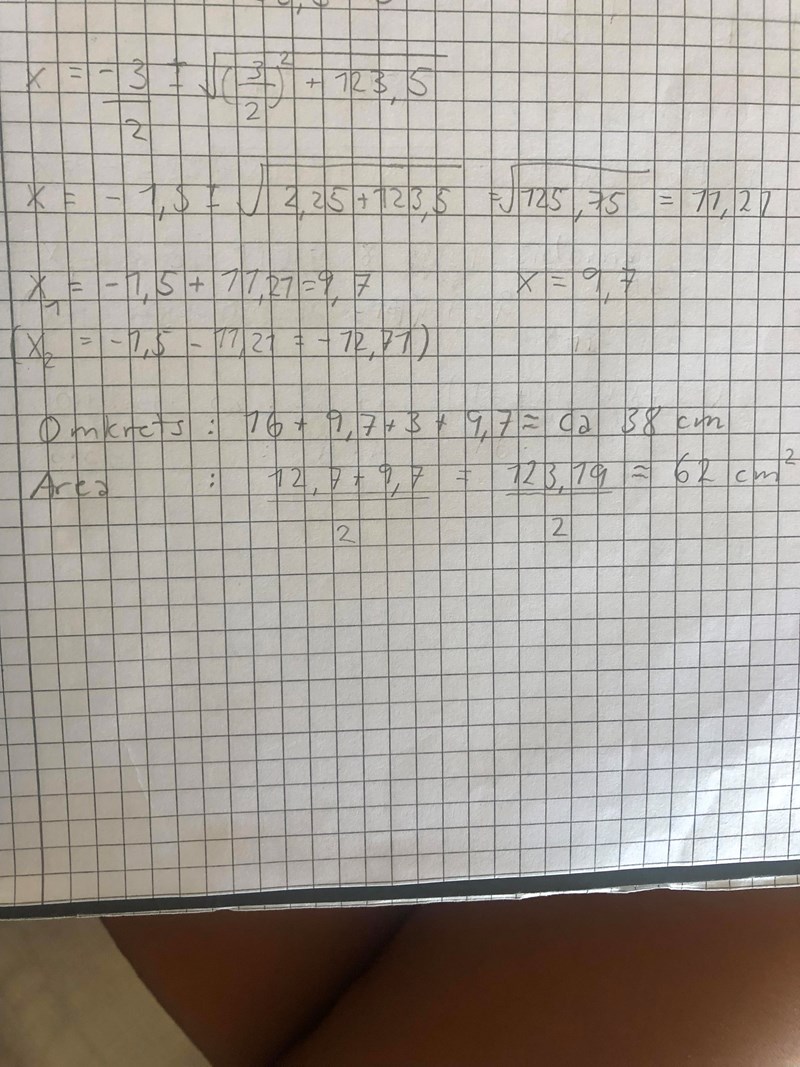 x = -3/2 ± √((3/2)² + 123,5
x = - 1,5 ± √2,25 + 123,5 = √125,75 = 11,21
x₁ = -1,5 + 11,21 = 9,7 x = 9,7
(x₂ = -1,5 - 11,21 = -12,71)
Omkrets : 16 + 9,7 + 3 + 9,7 ≈ ca 38 cm
Area : 12,7 + 9,7 / 2 = 123,19 / 2 ≈ 62 cm²